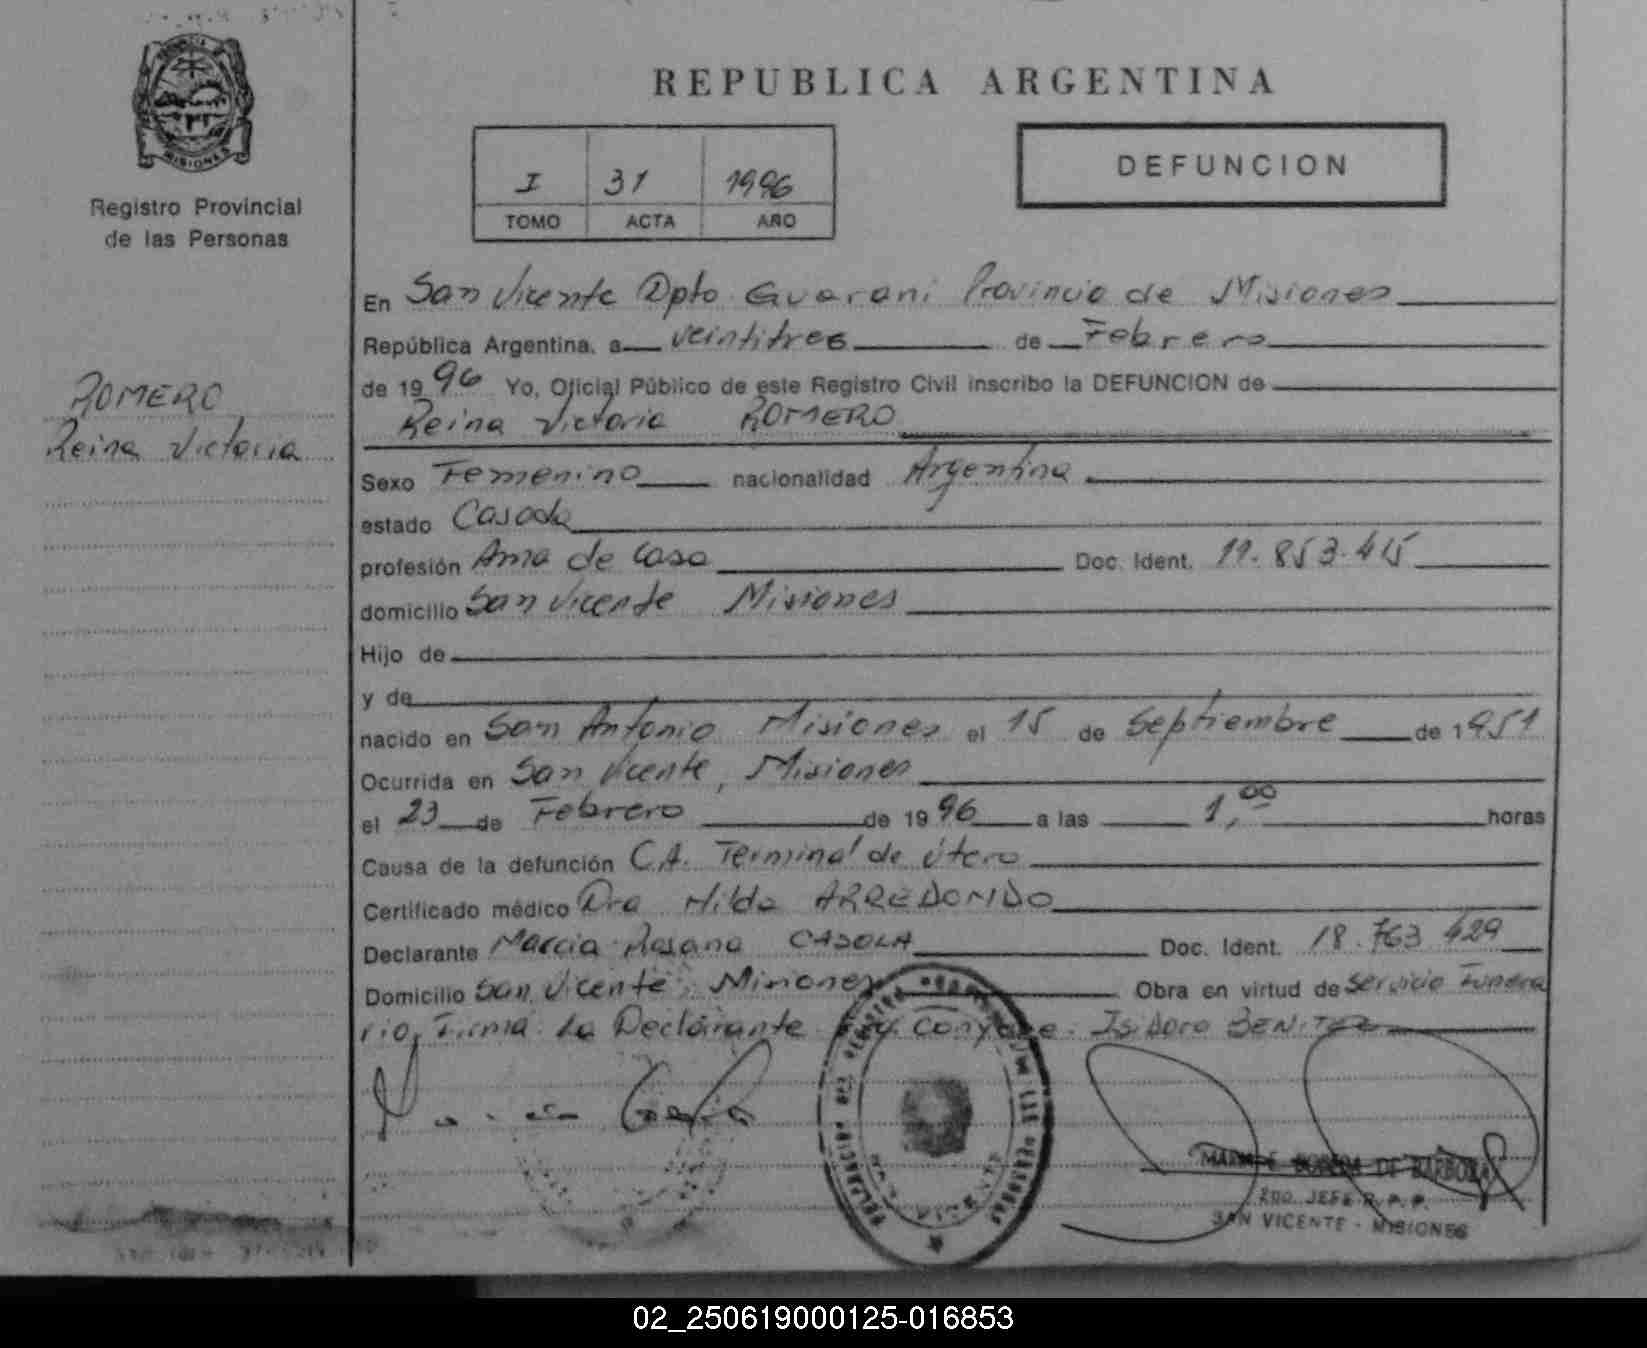 PROVINCIA DE
MISIONES
Registro Provincial
de las Personas
ROMERO
Reina Victoria
REPUBLICA ARGENTINA
I 31 1996
TOMO ACTA AÑO
DEFUNCION
En San Vicente Dpto Guarani Provincia de Misiones
República Argentina, a veintitres de Febrero
de 1996 Yo, Oficial Público de este Registro Civil inscribo la DEFUNCION de
Reina Victoria ROMERO
Sexo Femenino nacionalidad Argentina
estado Casada
profesión Ama de Casa Doc. Ident. 11.853.415
domicilio San Vicente Misiones
Hijo de
y de
nacido en San Antonio Misiones el 15 de Septiembre de 1951
Ocurrida en San Vicente, Misiones
el 23 de Febrero de 1996 a las 1,00 horas
Causa de la defunción C.A. Terminal de útero
Certificado médico Dra Hilda ARREDONDO
Declarante Marcia Rosana CASOLA Doc. Ident. 18.763.429
Domicilio San Vicente, Misiones Obra en virtud de Servicio Funera
rio, Firma: La Declarante Conyuge: Isidoro BENITEZ
DE BARBOZA
2DO. JEFE R. P. P.
SAN VICENTE - MISIONES
02_250619000125-016853